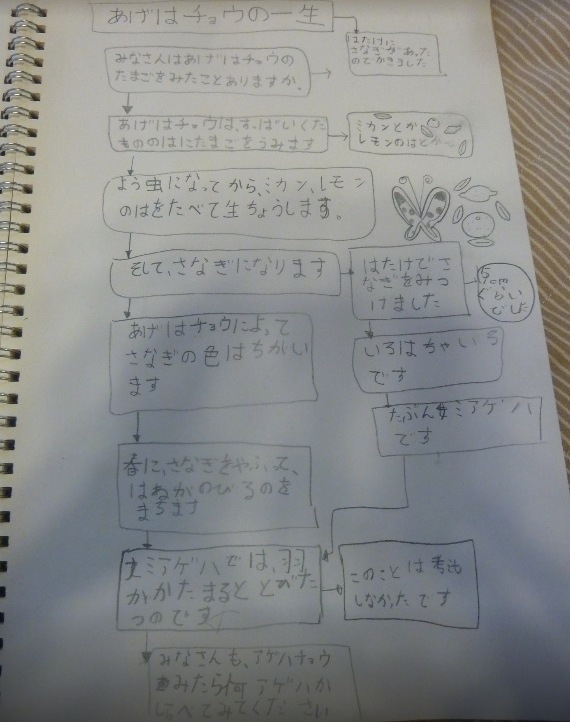 あげはチョウの一生
はたけに
さなぎがあった
のでかきました
みなさんはあげはチョウの
たまごをみたことありますか。
あげはチョウは、すっぱいくだ
もののはにたまごをうみます
ミカンとか
レモンのはとか
よう虫になってから、ミカン、レモン
のはをたべて生ちょうします。
そして、さなぎになります
はたけでさ
なぎをみつ
けました
ぐらい
でした
あげはチョウによって
さなぎの色はちがい
ます
いろはちゃいろ
です
たぶん
ミアゲハ
です
春に、さなぎをやぶって、
はねがのびるのを
まちます
ミアゲハでは、羽
がかたまるととびた
つのです
このことは
しなかったです
みなさんも、アゲハチョウ
みたら何アゲハか
しらべてみてください